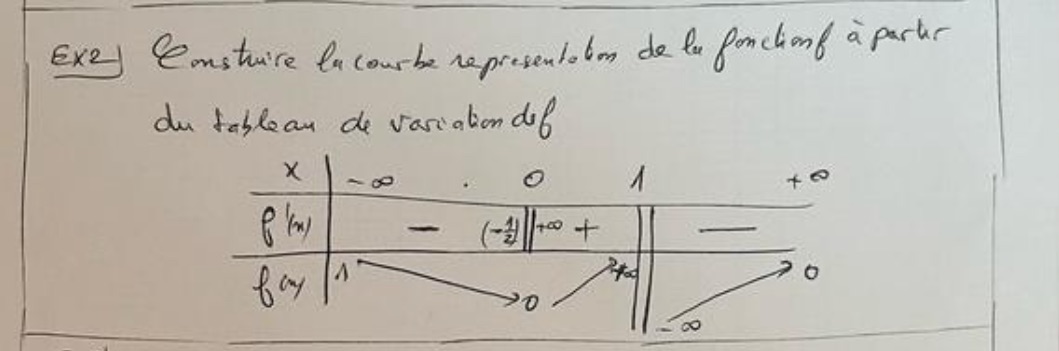 Ex2) Construire la courbe representation de la fonction f à partir
du tableau de variation de f
x -∞ . 0 1 +∞
f'(x) - (-1/2) || +∞ + || -
f(x) 1 0 +∞ || -∞ 0